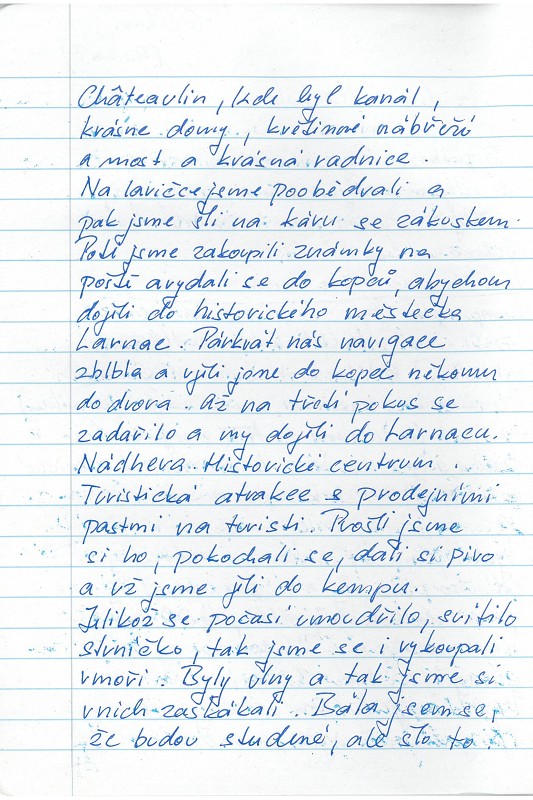 Châteaulin, kde byl kanál,
krásne domy, květinové nábřeží
a most a krásná radnice.
Na lavičce jsme poobědvali a
pak jsme šli na kávu se zákuskem.
Poté jsme zakoupili známky na
poště a vydali se do kopců, abychom
dojíli do historického městečka
Larnac. Párkrát nás navigace
zblbla a vjíli jsme do kopce někomu
do dvora. Až na třetí pokus se
zadařilo a my dojíli do Larnacu.
Nádhera. Historické centrum.
Turistická atrakce s prodejními
pastmi na turisti. Prošli jsme
si ho, pokochali se, dali si pivo
a už jsme jíli do kempu.
Jelikož se počasí umoudřilo, svítilo
sluníčko, tak jsme se i vykoupali
v moři. Byly vlny a tak jsme si
v nich zaskákali. Bála jsem se,
že budou studené, ale šlo to.